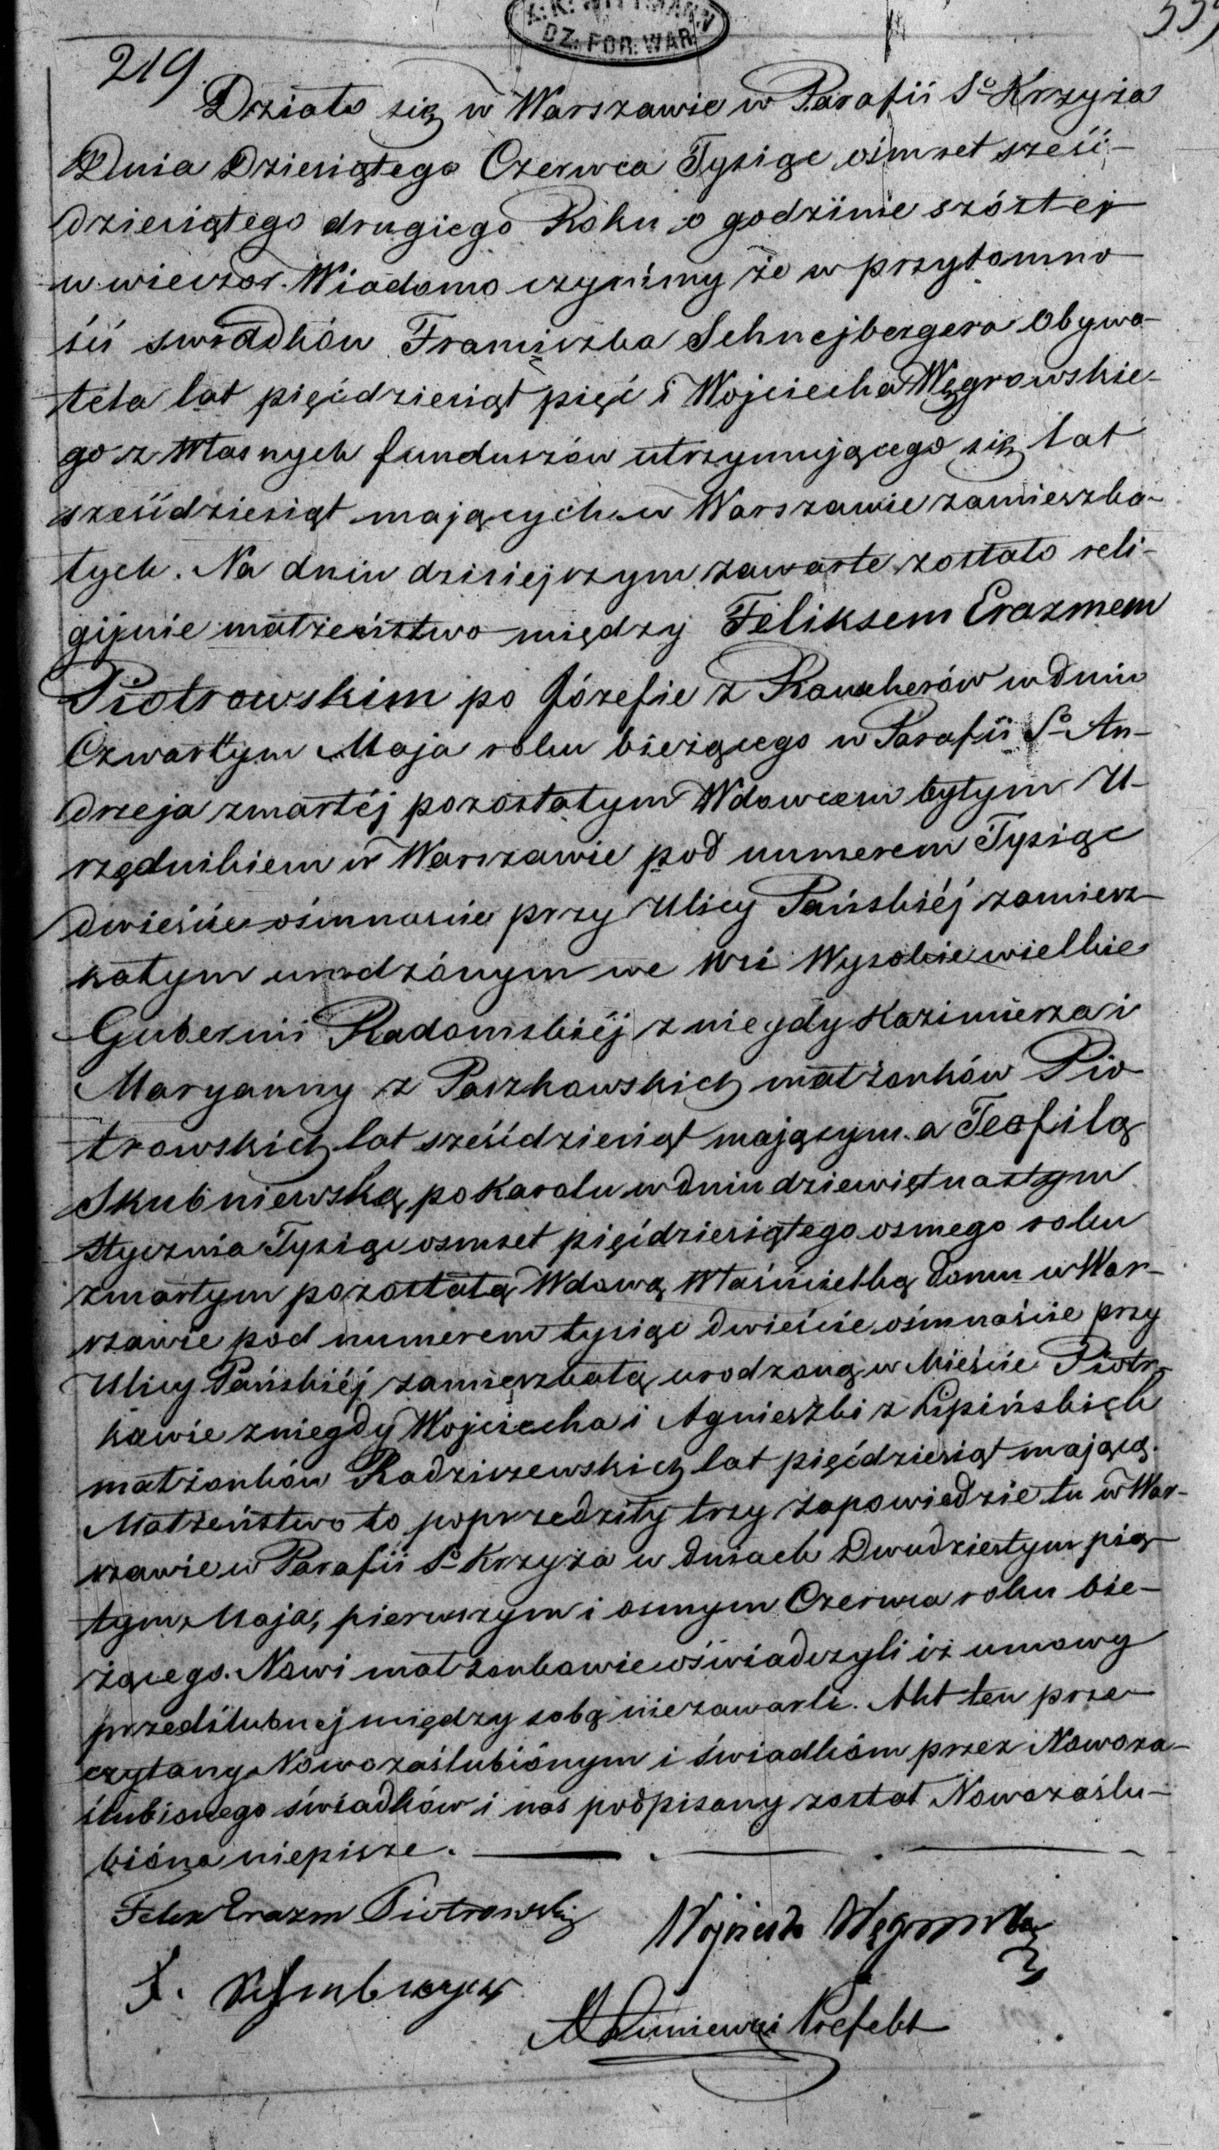 DZ. FOR. WAR.
219.
Działo się w Warszawie w Parafii Sº Krzyża
Dnia Dziesiątego Czerwca Tysiąc ośmset sześć-
dziesiątego drugiego Roku o godzinie szóstej
w wieczor. Wiadomo czynimy że w przytomno-
ści swiadków Franciszka Schnejbergera Obywa-
tela lat pięćdziesiąt pięć i Wojciecha Węgrowskie-
go z Własnych funduszów utrzymującego się lat
sześćdziesiąt mających w Warszawie zamieszka-
łych. Na dniu dzisiejszym zawarte zostało reli-
gijnie małżeństwo między Feliksem Erazmem
Piotrowskim po Józefie z w dniu
Czwartym Maja roku bieżącego w Parafii Sº An-
drzeja zmarłéj pozostałym Wdowcem byłym U-
rzędnikiem w Warszawie pod numerem Tysiąc
dwieście ośmnaście przy Ulicy Pańskiéj zamiesz-
kałym urodzónym we Wsi Wysokie wielkie
Gubernii Radomskiéj z niegdy Kazimierza i
Maryanny z Paszkowskich małżonków Pio-
trowskich lat sześćdziesiąt mającym. a Teofilą
Skubniewską po Karolu w dniu dziewiętnastym
stycznia Tysiąc osmset pięćdziesiątego osmego roku
zmarłym pozostałą Wdową Właścicielką domu w War-
szawie pod numerem tysiąc dwieście ośmnaście przy
Ulicy Pańskiéj zamieszkałą urodzoną w Mieście Piotr-
kowie z niegdy Wojciecha i Agnieszki z Lipińskich
małżonków Radziszewskich lat pięćdziesiąt mającą.
Małżeństwo to poprzedziły trzy zapowiedzie tu w War-
szawie w Parafii Sº Krzyża w dniach Dwudziestym pią-
tym Maja, pierwszym i osmym Czerwca roku bie-
żącego. Nowi małżonkowie oświadczyli iż umowy
przedślubnej między sobą niezawarli. Akt ten prze-
czytany Nowozaślubiónym i świadkóm przez Nowoza-
ślubionego świadków i nas podpisany został Nowozaślu-
bióna niepisze.
Felix Erazm Piotrowski
Wojciech Węgrowski
F.
Prefekt